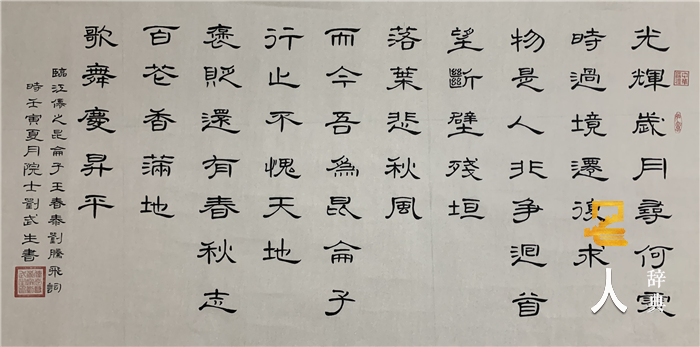 光輝歲月尋何處
時過境遷復求
物是人非爭迴首
望斷壁殘垣
落葉悲秋風
而今吾爲昆侖子
行止不愧天地
褒貶還有春秋志
百花香滿地
歌舞慶昇平
臨江僊之昆侖子王春泰劉騰飛詞
時壬寅夏月院士劉武生書
名人辞典